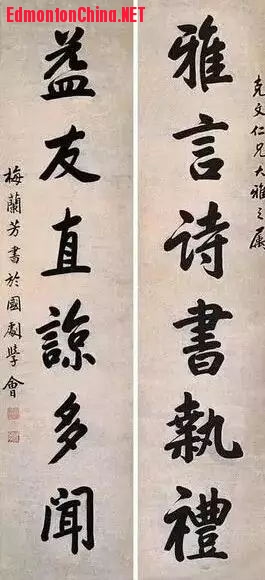 EdmontonChina.NET
克文仁兄大雅之属
雅言詩書執禮
益友直諒多聞
梅蘭芳書於國劇學會